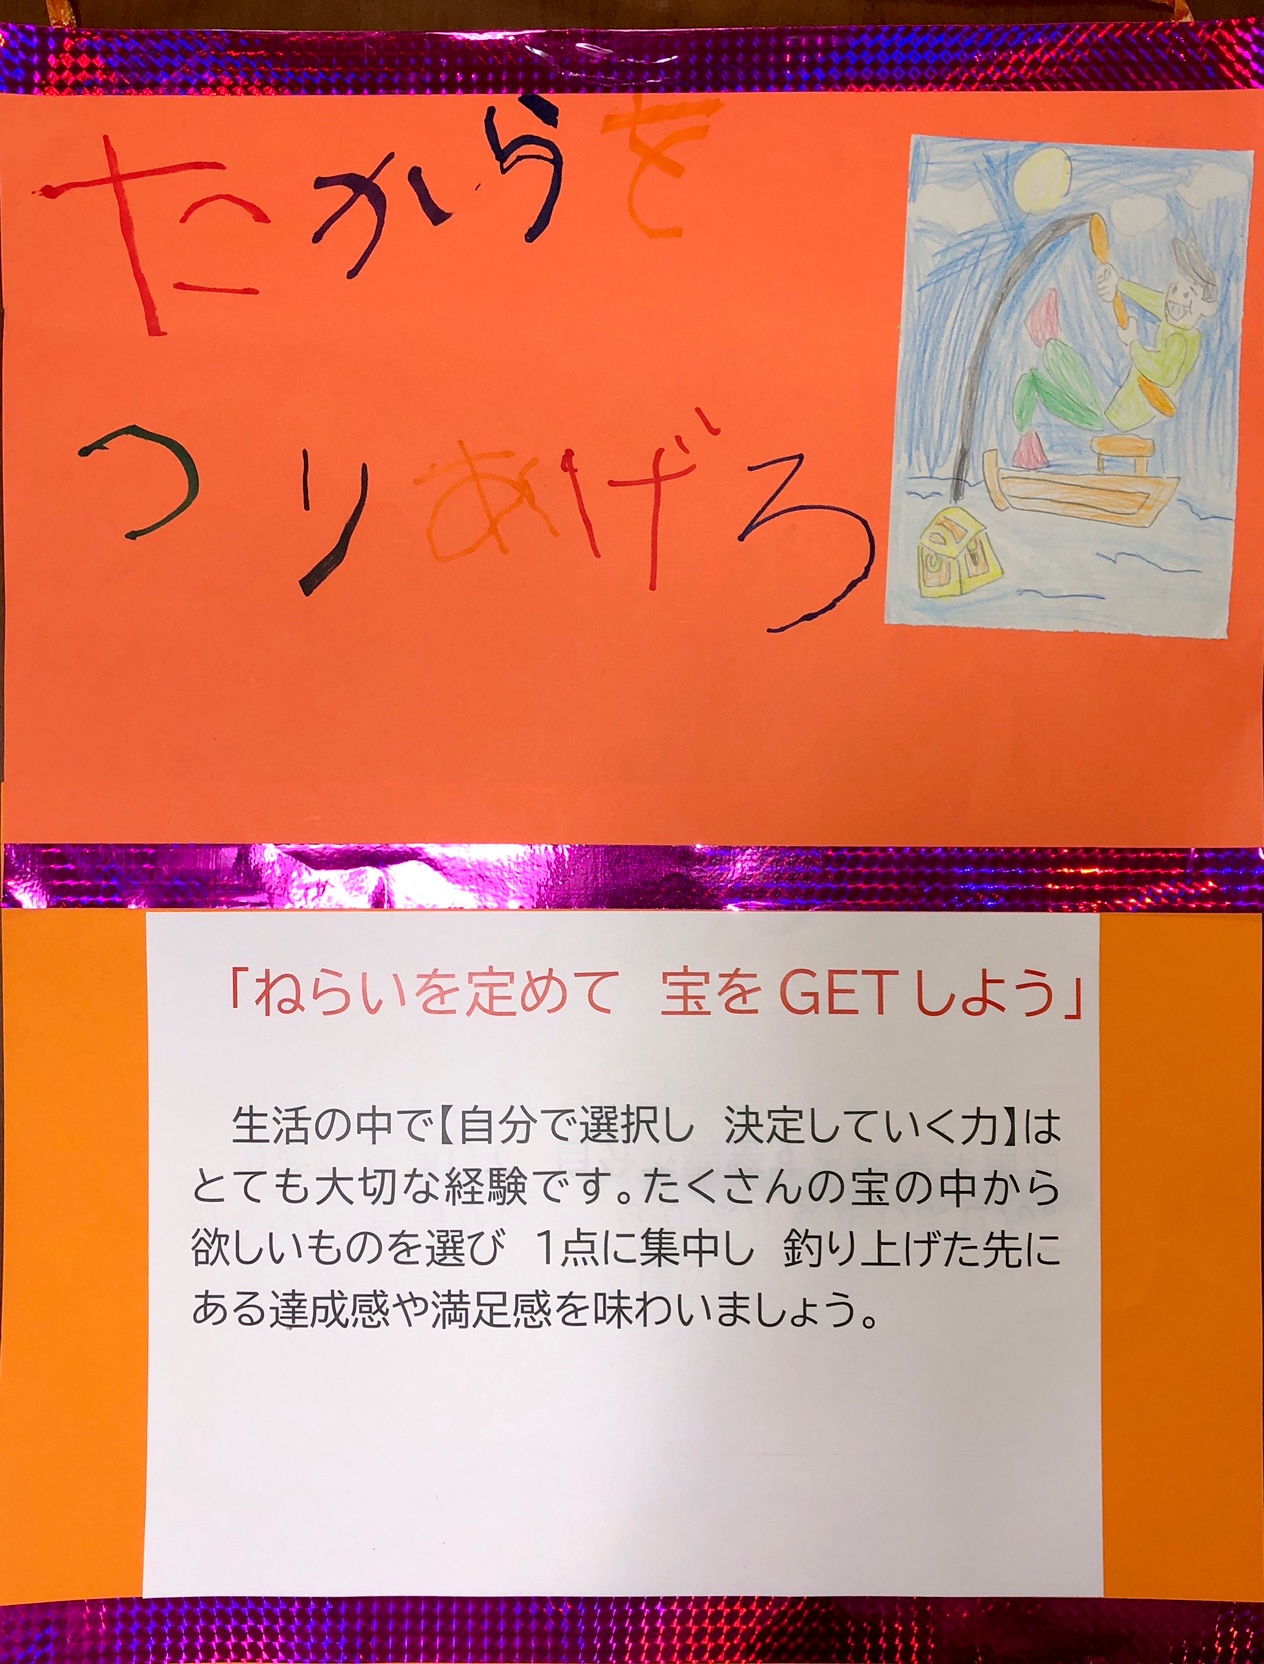 たからを
つりあげろ
「ねらいを定めて　宝をGETしよう」
生活の中で【自分で選択し　決定していく力】は
とても大切な経験です。たくさんの宝の中から
欲しいものを選び　1点に集中し　釣り上げた先に
ある達成感や満足感を味わいましょう。